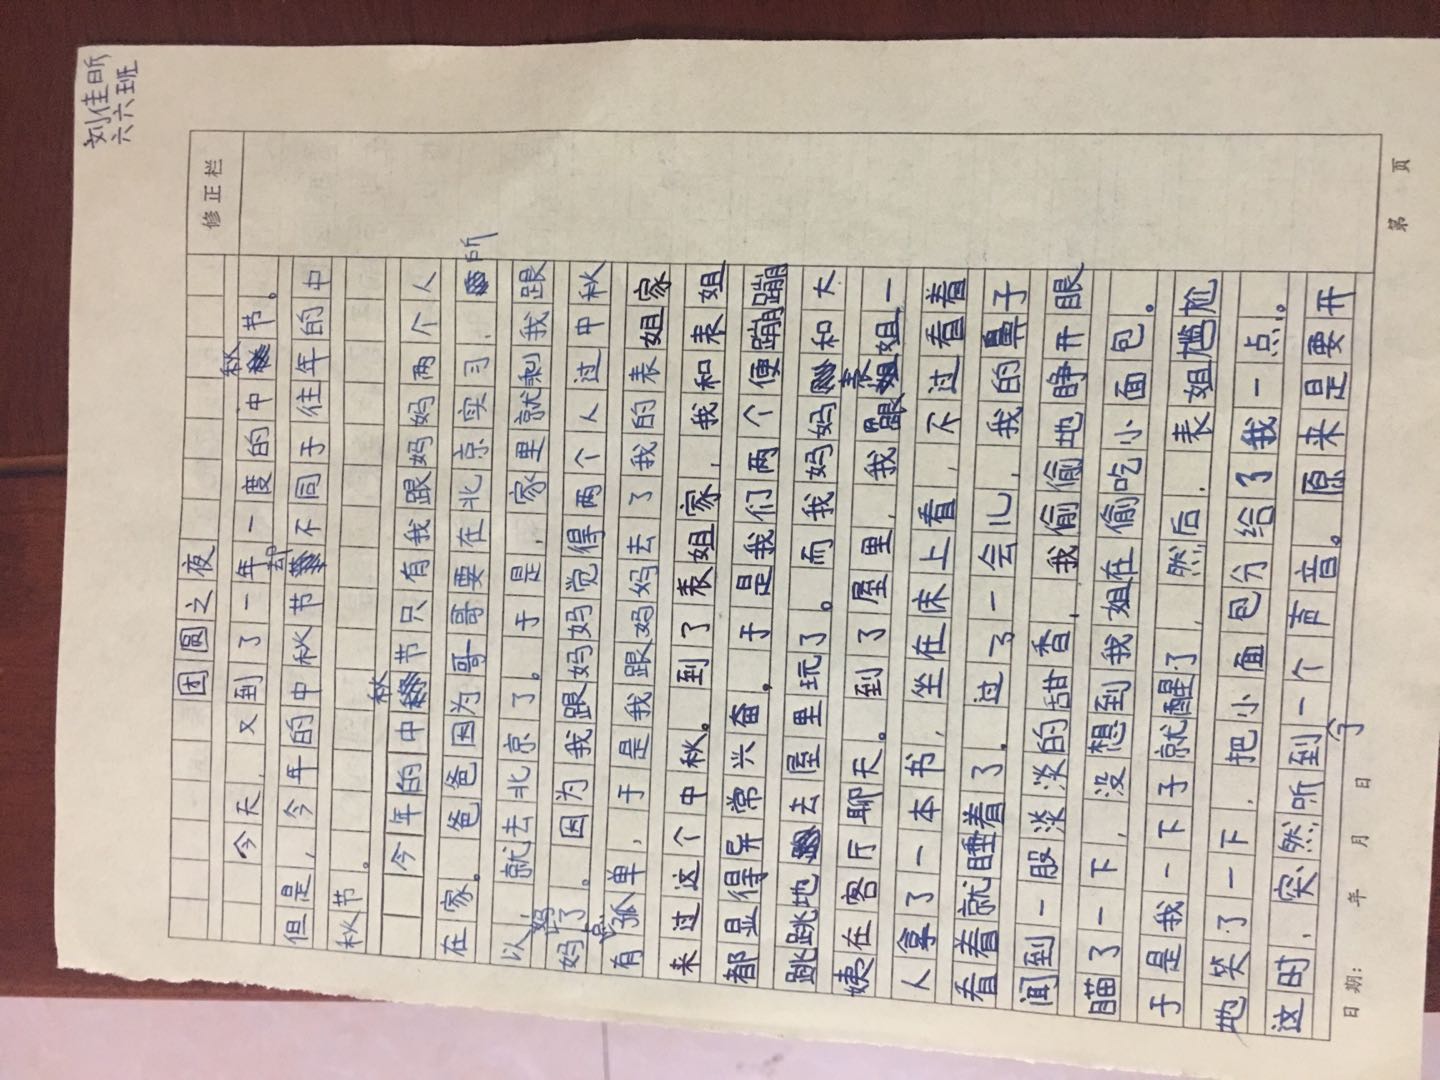 刘佳昕
六六班
修正栏
团圆之夜
今天，又到了一年一度的中秋节。
但是，今年的中秋节却不同于往年的中
秋节。
今年的中秋节只有我跟妈妈两个人
在家。爸爸因为哥哥要在北京实习，所
以，就去北京了。于是，家里就剩我跟
妈妈了。因为我跟妈妈觉得两个人过中秋
有点孤单，于是我跟妈妈去了我的表姐家
来过这个中秋。到了表姐家，我和表姐
都显得异常兴奋。于是我们两个便蹦蹦
跳跳地去屋里玩了。而我妈妈和大
姨在客厅聊天。到了屋里，我跟表姐一
人拿了一本书，坐在床上看，不过看着
看着就睡着了。过了一会儿，我的鼻子
闻到一股淡淡的甜香，我偷偷地睁开眼
瞄了一下，没想到我姐在偷吃小面包。
于是我一下子就醒了，然后，表姐尴尬
地笑了一下，把小面包分给了我一点。
这时，突然听到一个声音。原来是要开
日期： 年 月 日
第 页